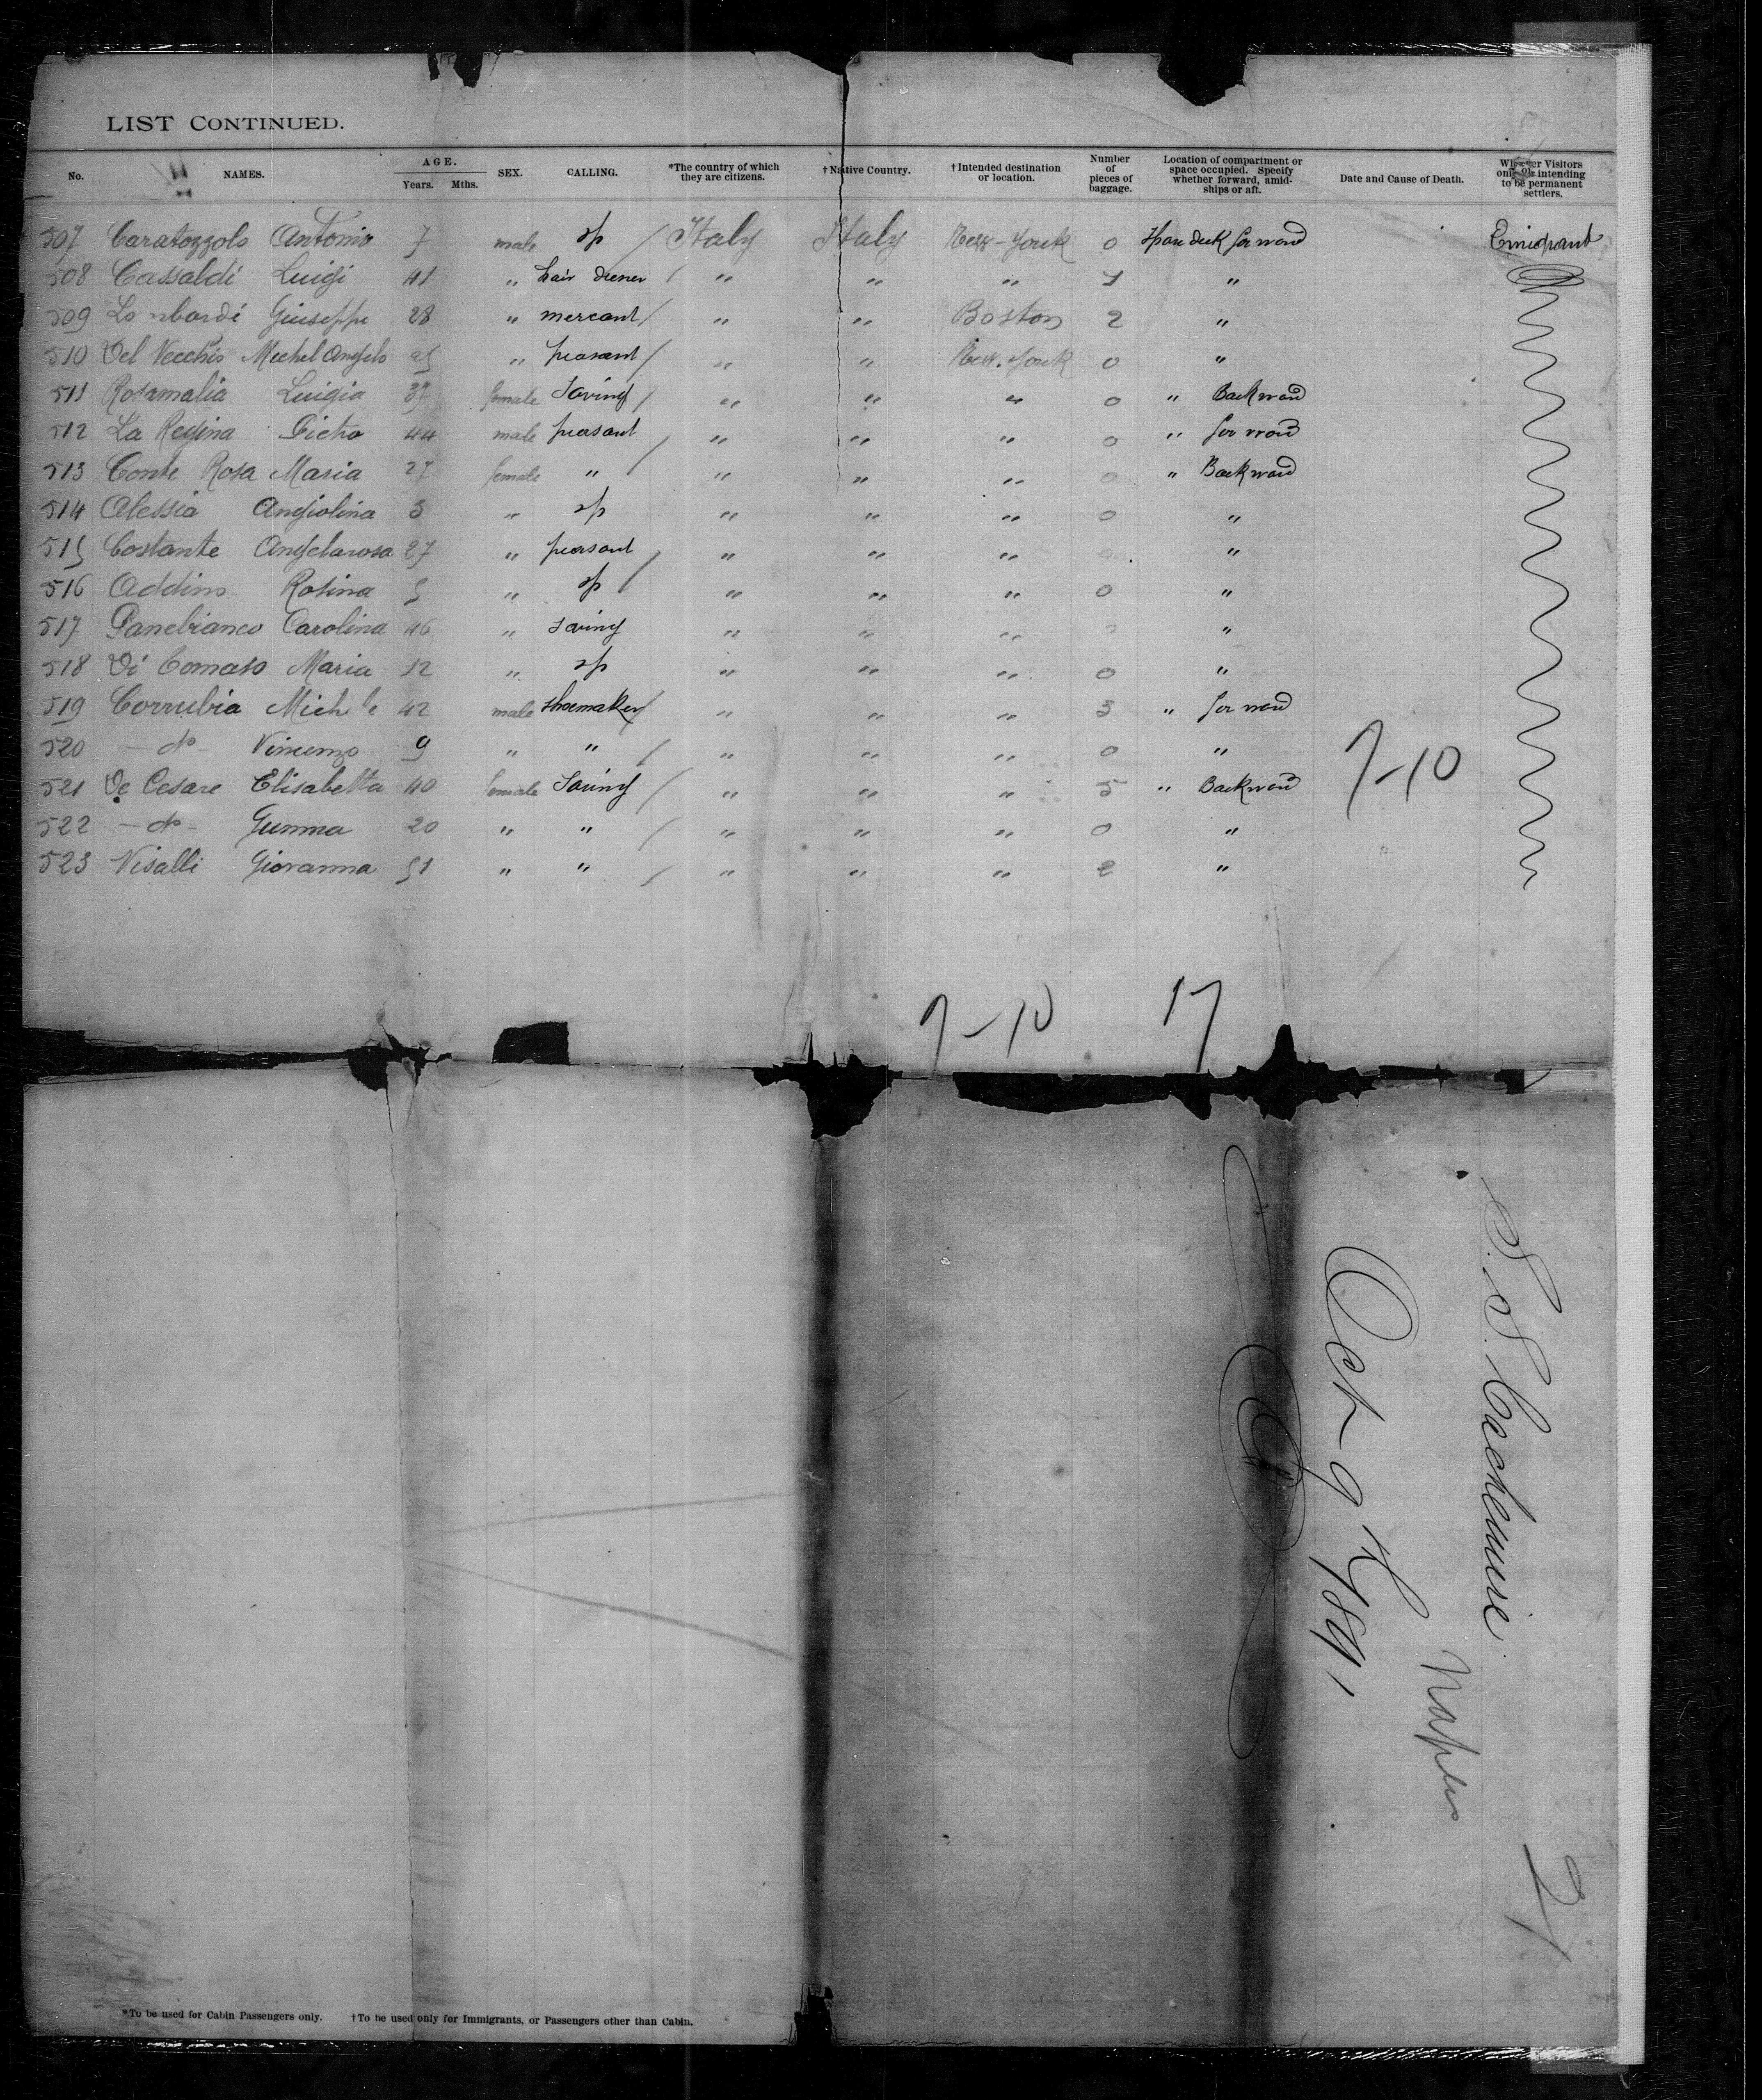 LIST CONTINUED.
No. NAMES. AGE. Years. Mths. SEX. CALLING. *The country of which they are citizens. †Native Country. †Intended destination or location. Number of pieces of baggage. Location of compartment or space occupied. Specify whether forward, amidships or aft. Date and Cause of Death. Whether Visitors only or intending to be permanent settlers.
507 Caratozzolo Antonio 7 male sp / Italy Italy New-York 0 Spar deck forward Emigrant
508 Cassaldi Luigi 41 " hair dresser / " " " 1 "
509 Lombardi Giuseppe 28 " mercant / " " Boston 2 "
510 Del Vecchio Michel Angelo 25 " peasant / " " New-York 0 "
511 Rosamalia Luigia 37 female Saving / " " " 0 " Backward
512 La Regina Pietro 44 male peasant / " " " 0 " forward
513 Conte Rosa Maria 27 female " / " " " 0 " Backward
514 Alessia Angiolina 3 " sp " " " 0 "
515 Costante Angelarosa 27 " peasant / " " " 0 "
516 Addino Rosina 5 " sp / " " " 0 "
517 Panebianco Carolina 46 " Saving " " " "
518 Di Comaso Maria 12 " sp " " " 0 "
519 Corrubia Michele 42 male shoemaker / " " " 3 " forward
520 - do - Vincenzo 9 " " / " " " 0 "
521 De Cesare Elisabetta 40 female Saving / " " " 5 " Backward
7-10
522 - do - Gemma 20 " " / " " " 0 "
523 Visalli Giovanna 51 " " / " " " 2 "
7-10 17
S.S. Cachemire
Naples
Oct 9th 1891
21
*To be used for Cabin Passengers only. †To be used only for Immigrants, or Passengers other than Cabin.